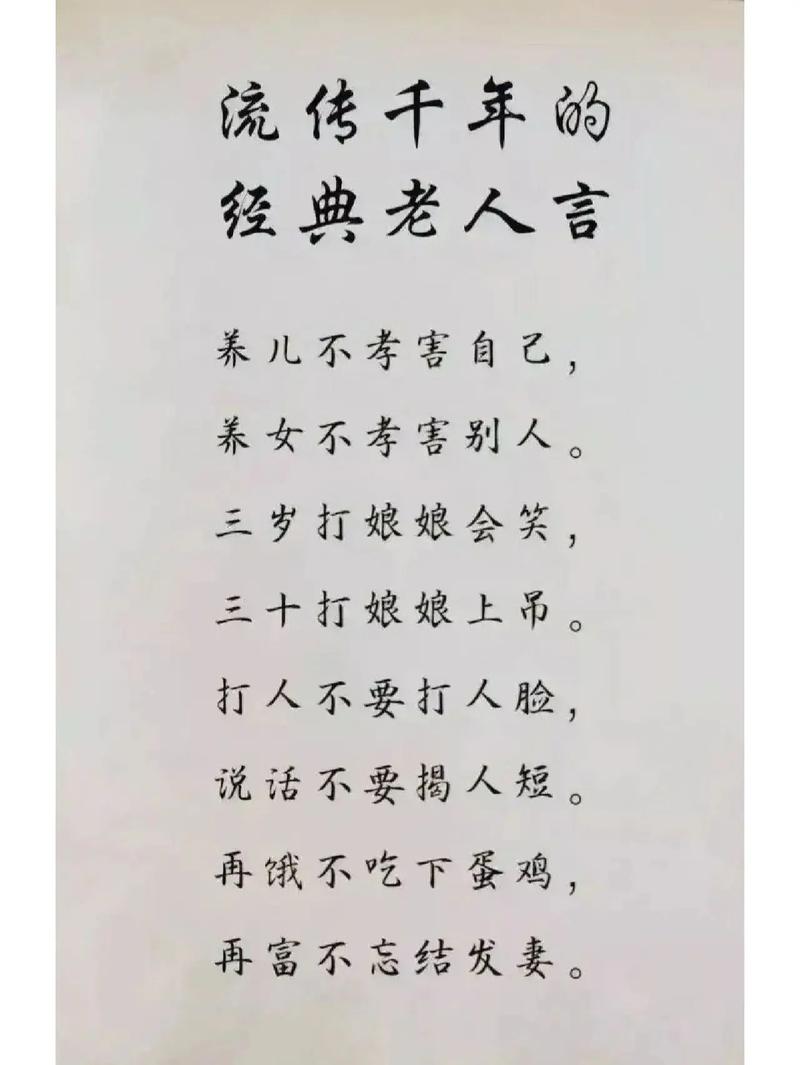 流传千年的
经典老人言
养儿不孝害自己，
养女不孝害别人。
三岁打娘娘会笑，
三十打娘娘上吊。
打人不要打人脸，
说话不要揭人短。
再饿不吃下蛋鸡，
再富不忘结发妻。